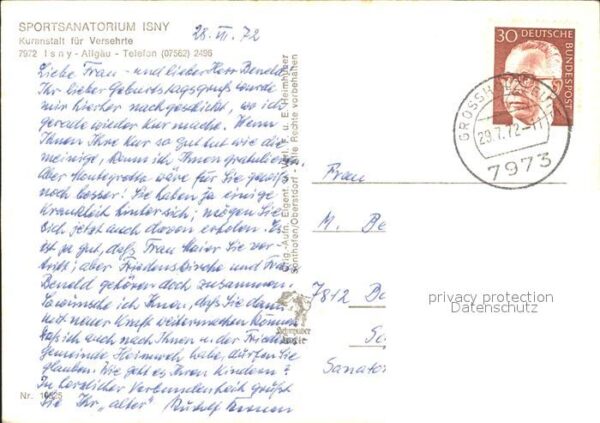 SPORTSANATORIUM ISNY
Kuranstalt für Versehrte
7972 Isny - Allgäu - Telefon (07562) 2496
28. VI. 72
Liebe Frau - und lieber Herr Beneld,
Ihr lieber Geburtstagsgruß wurde
mir hierher nachgeschickt, wo ich
gerade wieder Kur mache. Wenn
Ihnen Ihre Kur so gut tut wie die
meinige, kann ich Ihnen gratulieren.
Aber Montegrotto wäre für Sie gewiß
noch besser! Sie haben ja einige
Krankheit hinter sich; mögen Sie
sich jetzt auch davon erholen. Es
ist ja gut, daß Frau Maier Sie ver-
tritt; aber Friedenskirche und Frau
Beneld gehören doch zusammen.
So wünsche ich Ihnen, daß Sie dann
mit neuer Kraft weitermachen können.
Daß ich auch nach Ihnen u. der Friedens-
gemeinde Heimweh habe, dürfen Sie
glauben. Wie geht es Ihren Kindern?
In herzlicher Verbundenheit grüßt
Sie Ihr "alter" Rudolf
Nr.
Orig.-Aufn. Eigent. u. Verl. F. u. E. Heimhuber
Sonthofen/Oberstdorf - Alle Rechte vorbehalten
Heimhuber
30 DEUTSCHE
BUNDESPOST
29.7.72-11
7973
Frau
M. Be
7812 Ba
Sa
Sanator
privacy protection
Datenschutz